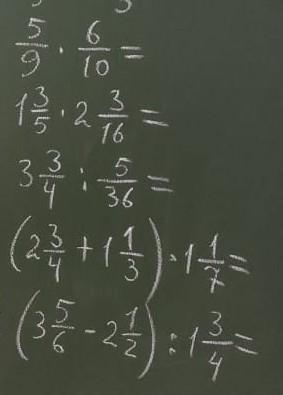 5/9 · 6/10 =
1 3/5 · 2 3/16 =
3 3/4 : 5/36 =
(2 3/4 + 1 1/3) · 1 1/7 =
(3 5/6 - 2 1/2) : 1 3/4 =